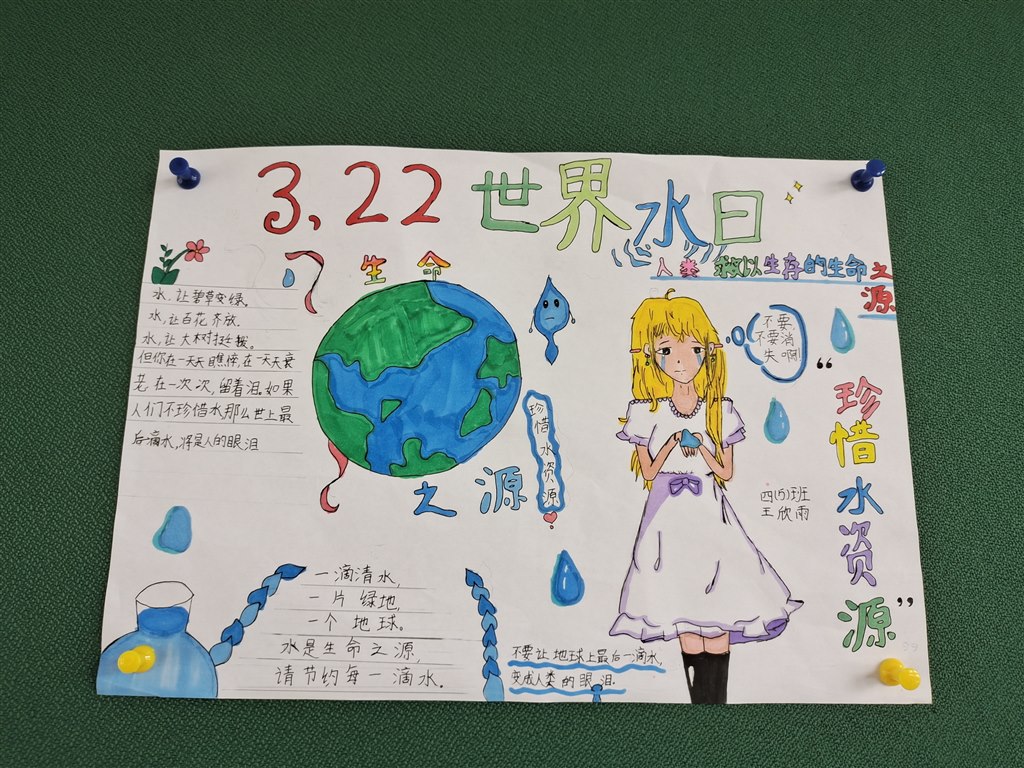 3.22世界水日
人类赖以生存的生命之
源
生命
之源
水,让碧草变绿。
水,让百花齐放.
水,让大树挺拔。
但你在一天天憔悴,在一天天衰
老,在一次次,留着泪。如果
人们不珍惜水那么世上最
后一滴水,将是人的眼泪
珍惜水资源
不要,
不要消
失啊!
“珍惜水资源”
四(5)班
王欣雨
一滴清水,
一片绿地,
一个地球。
水是生命之源,
请节约每一滴水.
不要让地球上最后一滴水,
变成人类的眼泪.